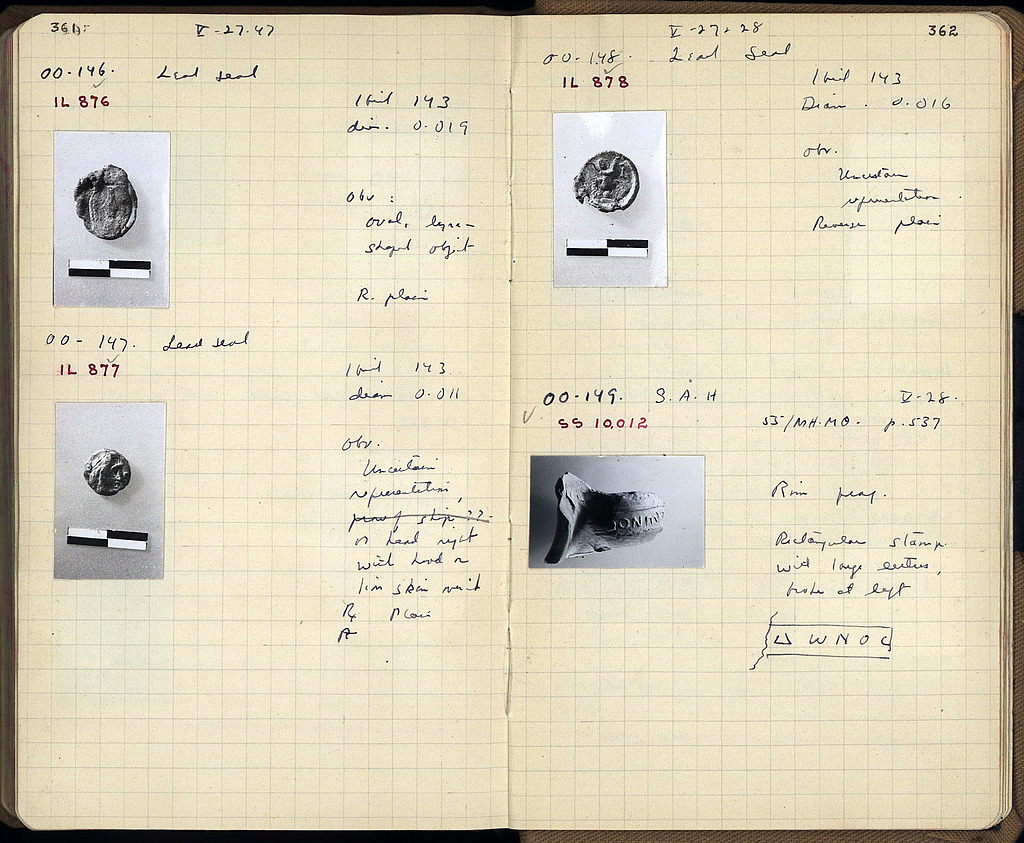 361
V-27-47
00-146. Lead seal
IL 876
143
diam. 0.019
Obv:
oval, lyre-
shaped object
R. plain
00-147. Lead seal
IL 877
143
diam 0.011
Obv.
Uncertain
representation,
prow of ship ??
or head right
with hood or
lion skin
Rx Plain
V-27+28
362
00-148. Lead Seal
IL 878
143
Diam. 0.016
obv.
Uncertain
representation.
Reverse plain
00-149. S.A.H
V-28.
SS 10,012
SS/MH.MO. p.537
Rim frag.
Rectangular stamp
with large letters,
broken at left
ΔWNOC